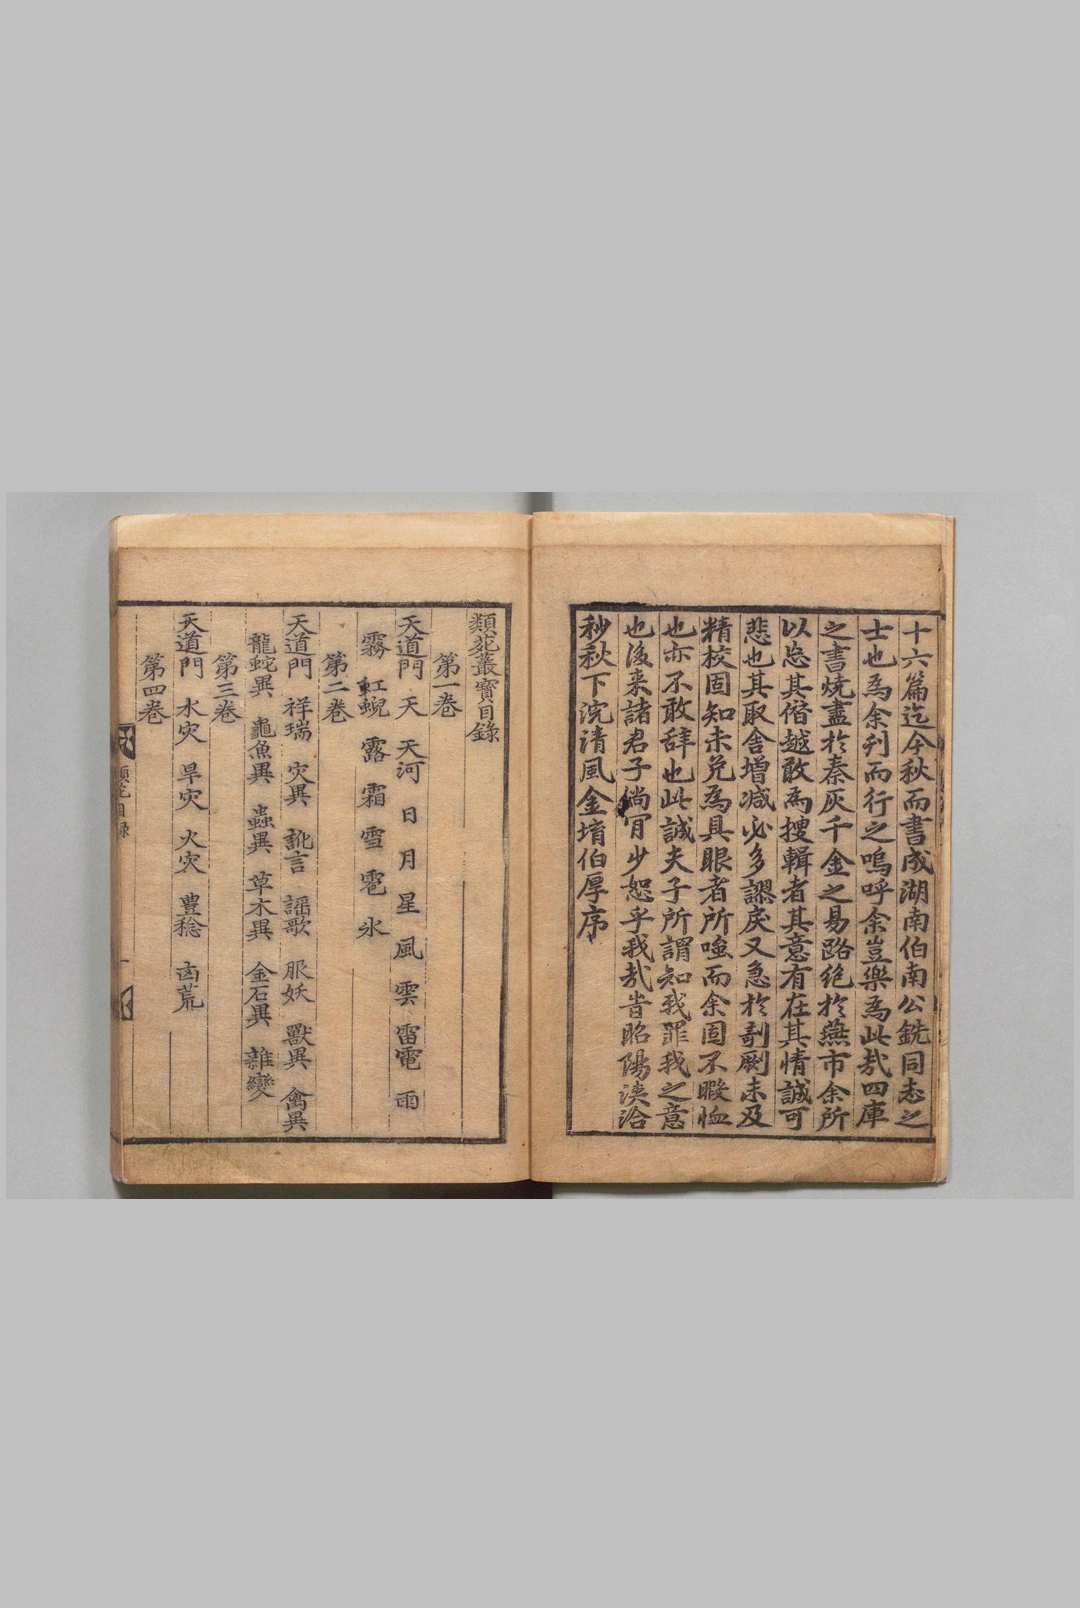 十六篇迄今秋而書成湖南伯南公銑同志之
士也爲余刋而行之嗚呼余豈樂爲此㢤四庫
之書燒盡於秦灰千金之易路絶於燕市余所
以忘其僭越敢爲搜輯者其意有在其情誠可
悲也其取舍增減必多謬戾又急於剞劂未及
精校固知未免爲具眼者所嗤而余固不暇恤
也亦不敢辞也此誠夫子所謂知我罪我之意
也後来諸君子倘肎少恕乎我㢤昔昭陽洟洽
秒秋下浣淸風金堉伯厚序
類苑叢寶目錄
第一卷
天道門 天 天河 日 月 星 風 雲 雷電 雨
霧 虹蜺 露 霜 雪 雹 氷
第二卷
天道門 祥瑞 灾異 訛言 謡歌 服妖 獸異 禽異
龍蛇異 龜魚異 蟲異 草木異 金石異 雜變
第三卷
天道門 水灾 旱灾 火灾 豊稔 凶荒
第四卷
類苑目録 一